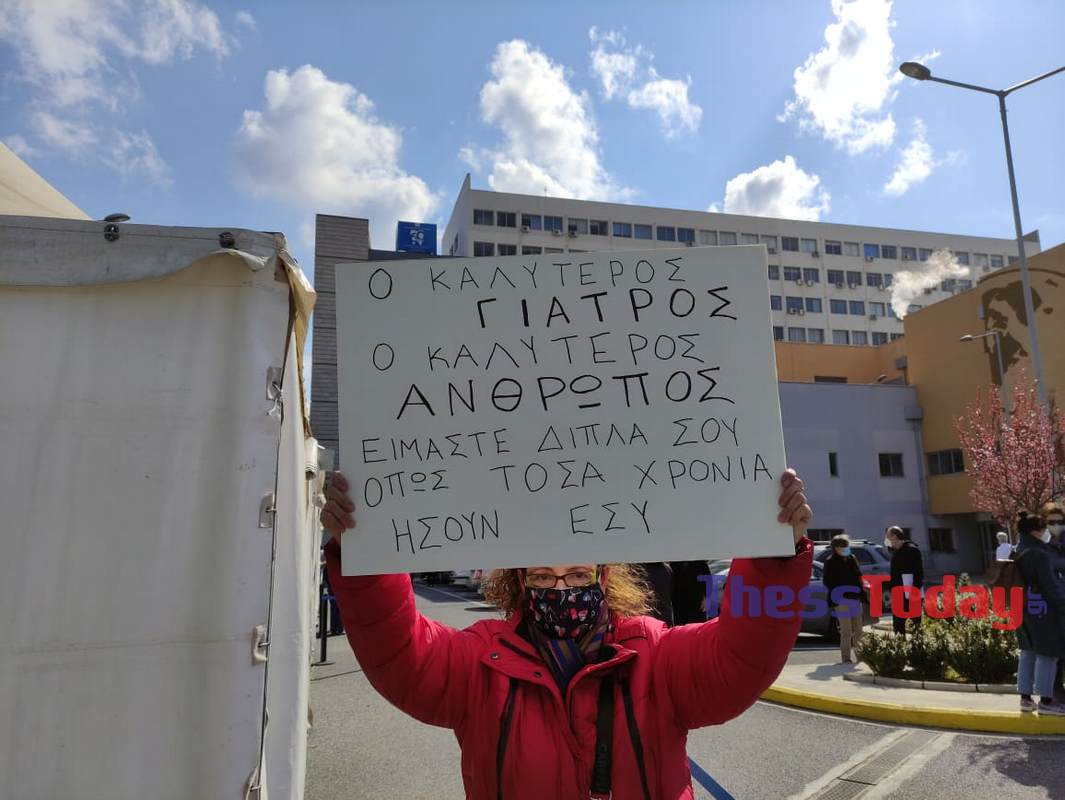 Ο ΚΑΛΥΤΕΡΟΣ
ΓΙΑΤΡΟΣ
Ο ΚΑΛΥΤΕΡΟΣ
ΑΝΘΡΩΠΟΣ
ΕΙΜΑΣΤΕ ΔΙΠΛΑ ΣΟΥ
ΟΠΩΣ ΤΟΣΑ ΧΡΟΝΙΑ
ΗΣΟΥΝ ΕΣΥ
ThessToday.gr